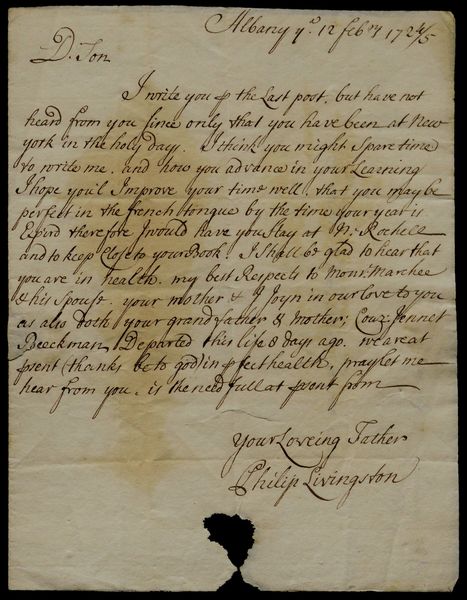 Albany ye 12 febry 1724/5
D. Son
I write you ⅌ the Last post, but have not
heard from you since only that you have been at New
york in the holy day. I think you might spare time
to write me, and how you advance in your Learning
I hope you'l Improve your time well, that you may be
perfect in the french tongue by the time your year is
Expird therefore I would have you stay at N. Rochell
and to keep Close to your Book. I shall be glad to hear that
you are in health. my best Respects to Monr. Marchee
& his Spouse. your mother & I Joyn in our love to you
as also doth your grandfather & Mother; Couz: Jennet
Beeckman Departed this life 8 days ago. we are at
psent (thanks be to god) in pfect health, pray let me
hear from you. is the needfull at psent from
Your Loveing Father
Philip Livingston